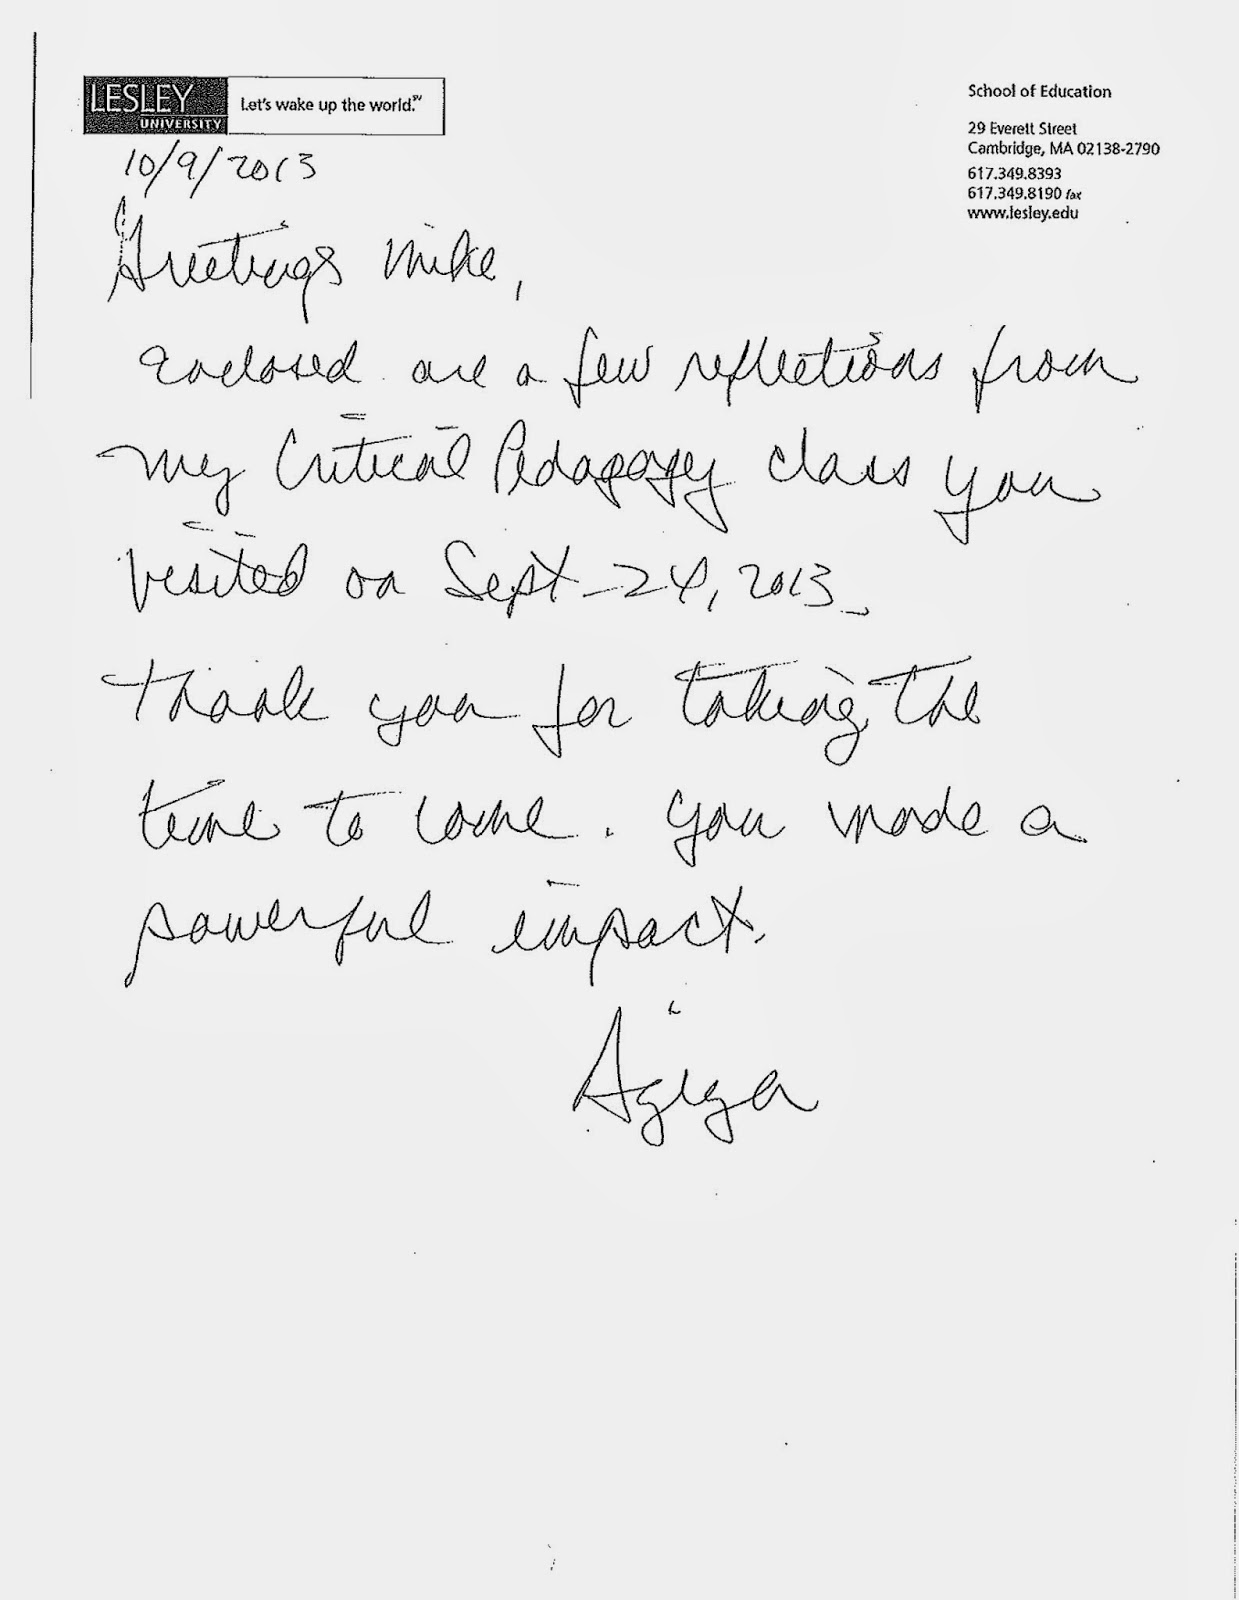 LESLEY
UNIVERSITY
Let's wake up the world.℠
School of Education
29 Everett Street
Cambridge, MA 02138-2790
617.349.8393
617.349.8190 fax
www.lesley.edu
10/9/2013
Greetings Mike,
Enclosed are a few reflections from
my Critical Pedagogy class you
visited on Sept 24, 2013.
Thank you for taking the
time to come. You made a
powerful impact.
Aziza